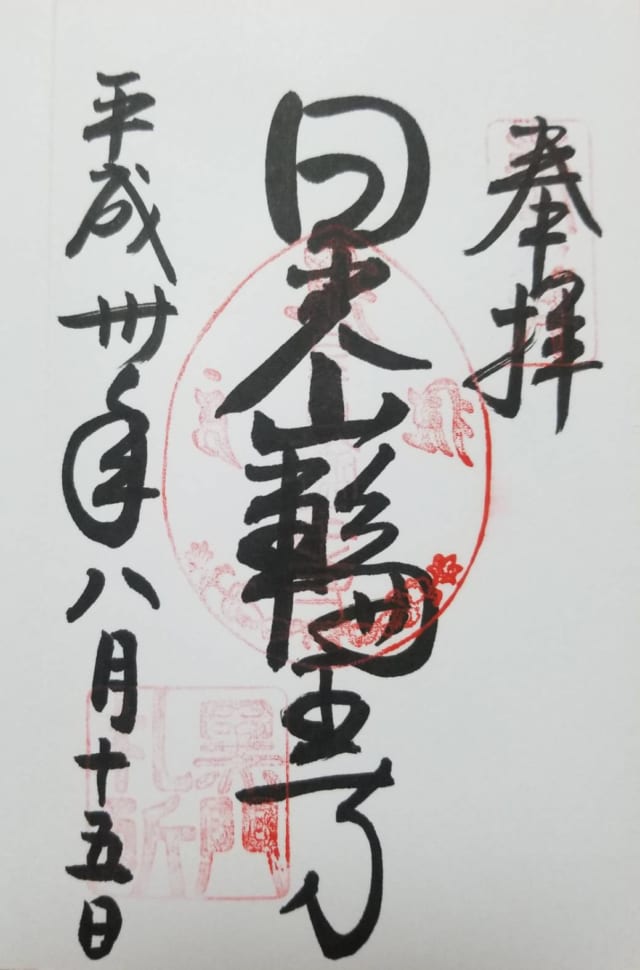 奉拝
日光山輪王寺
平成卅年八月十五日
黒門
札所